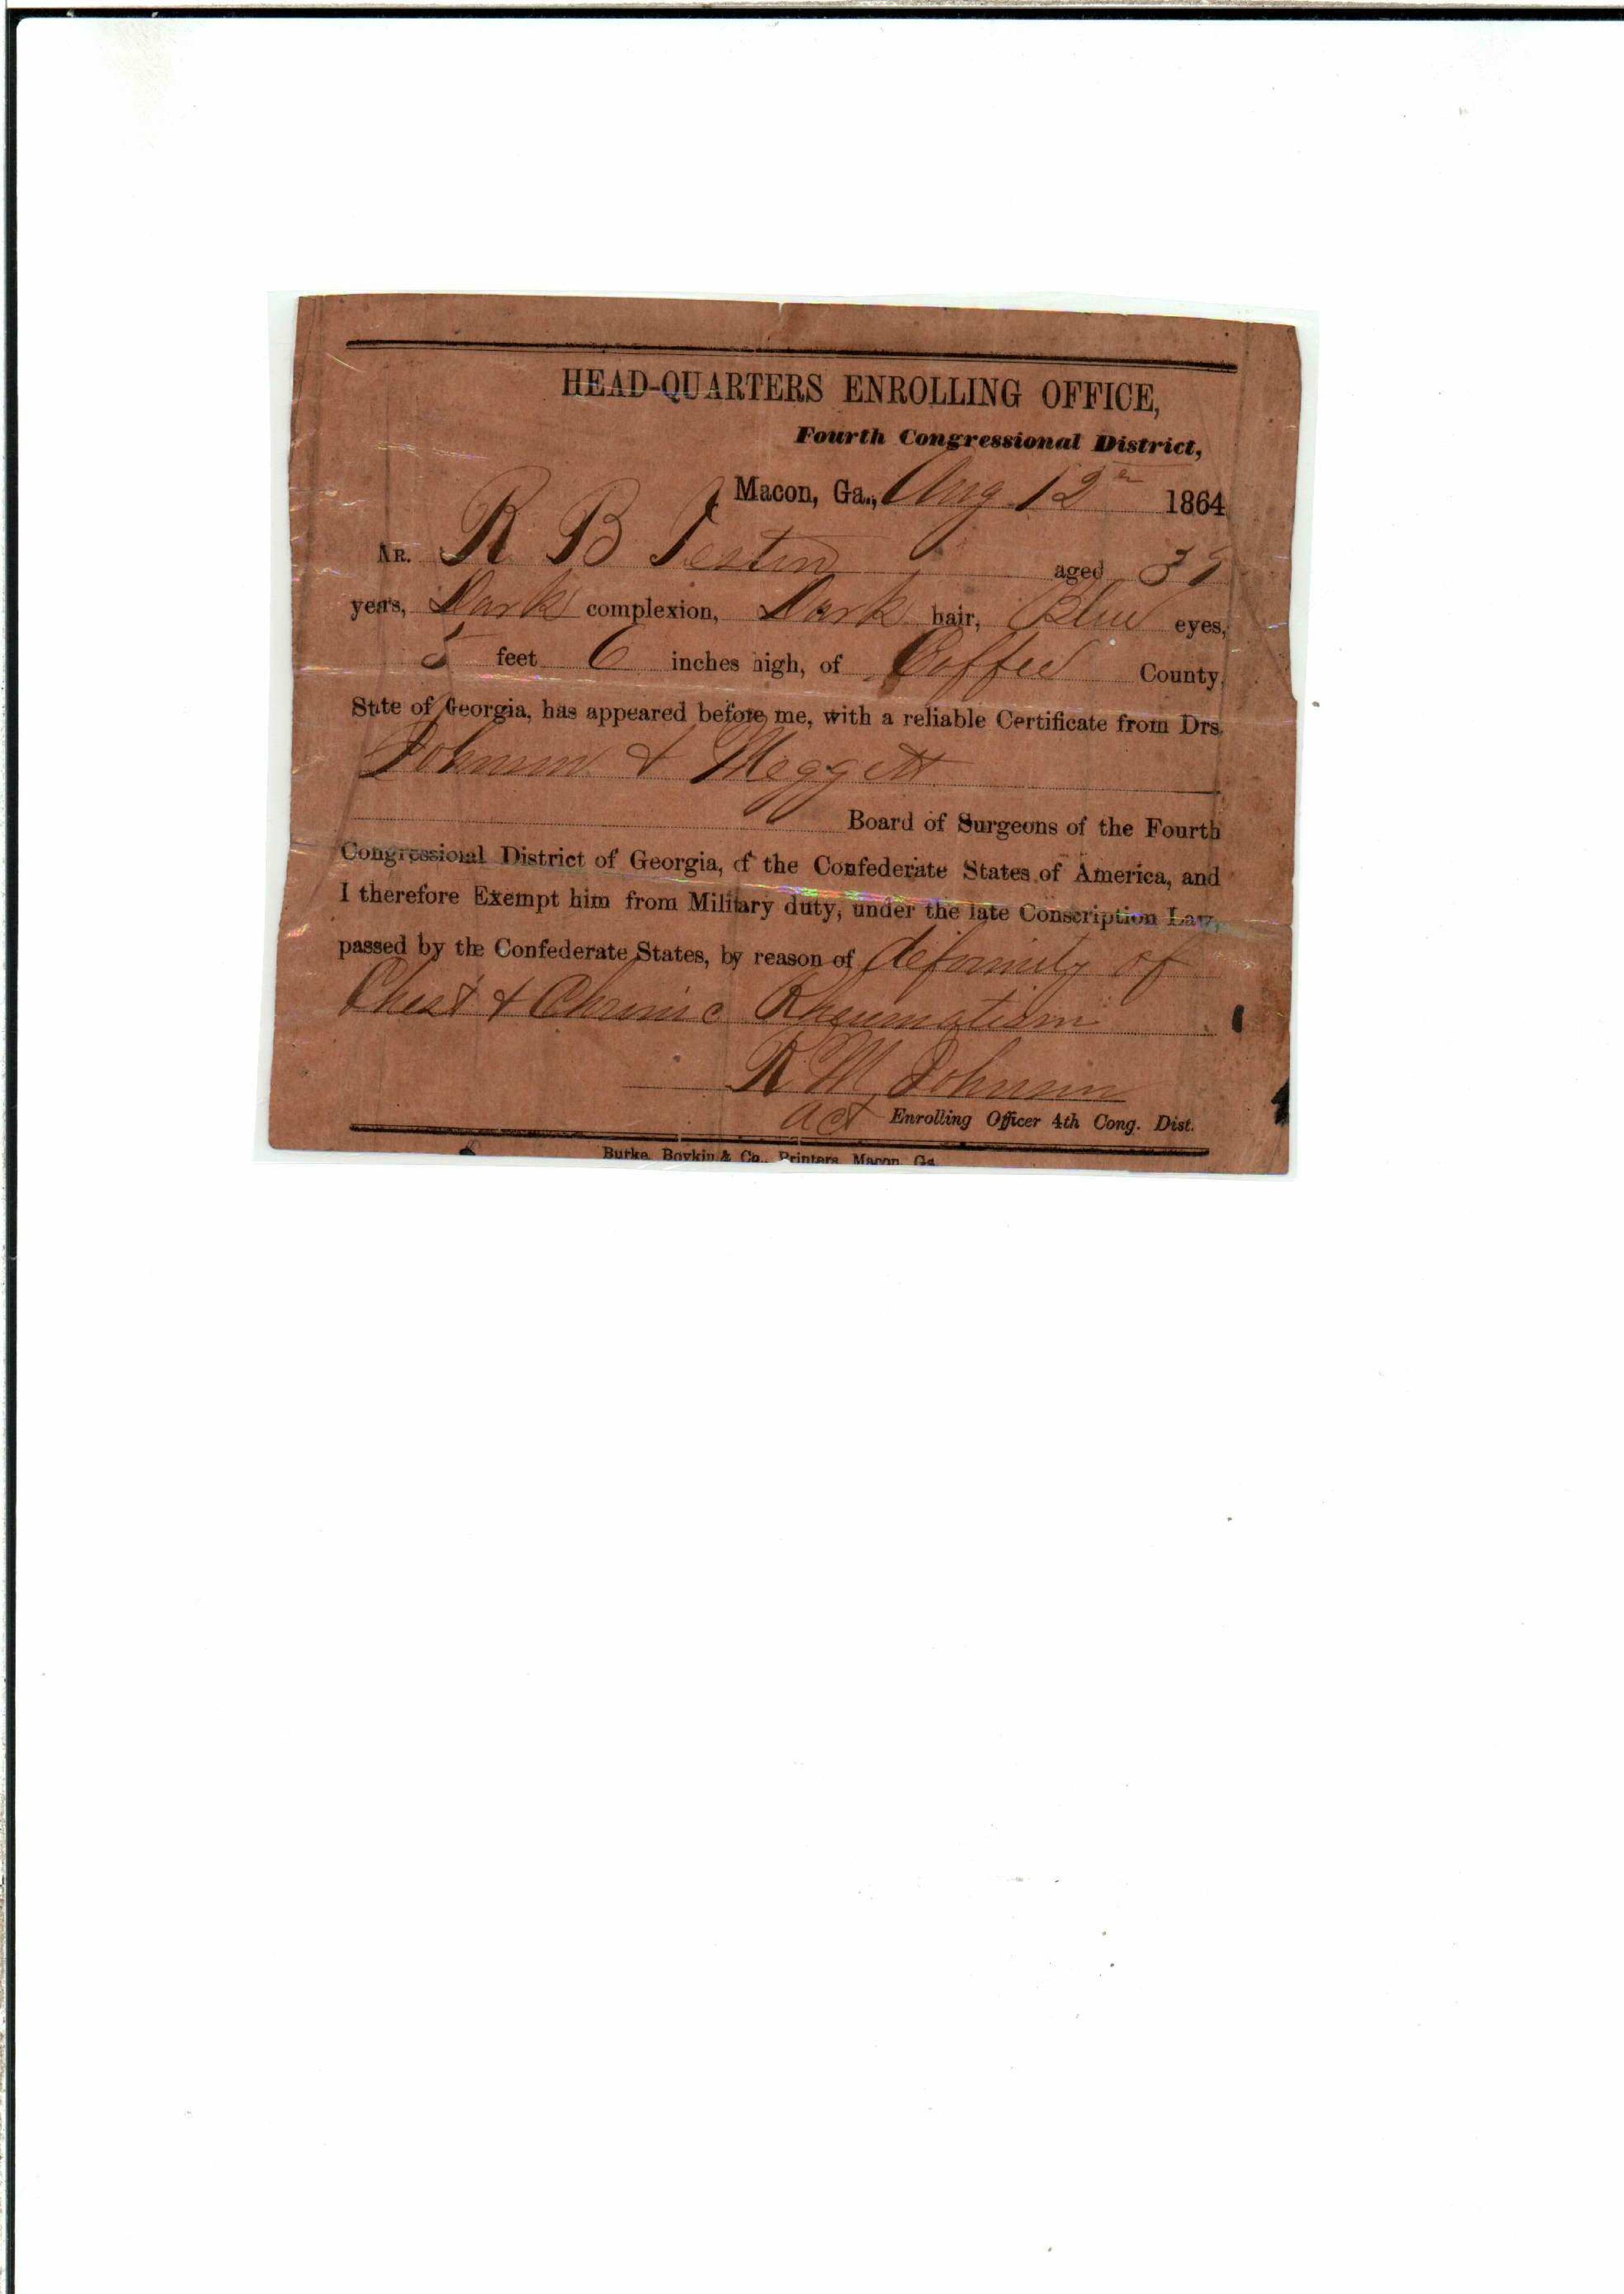 HEAD-QUARTERS ENROLLING OFFICE,
Fourth Congressional District,
Macon, Ga., Aug 12 1864
MR. R B aged
years, Dark complexion, Dark hair, Blue eyes,
5 feet 6 inches high, of Coffee County,
State of Georgia, has appeared before me, with a reliable Certificate from Drs.
Johnson & Meggett
Board of Surgeons of the Fourth
Congressional District of Georgia, of the Confederate States of America, and
I therefore Exempt him from Military duty, under the late Conscription Law,
passed by the Confederate States, by reason of deformity of
Chest & Chronic Rheumatism
R M Johnson
act Enrolling Officer 4th Cong. Dist.
Burke, Boykin & Co., Printers, Macon, Ga.